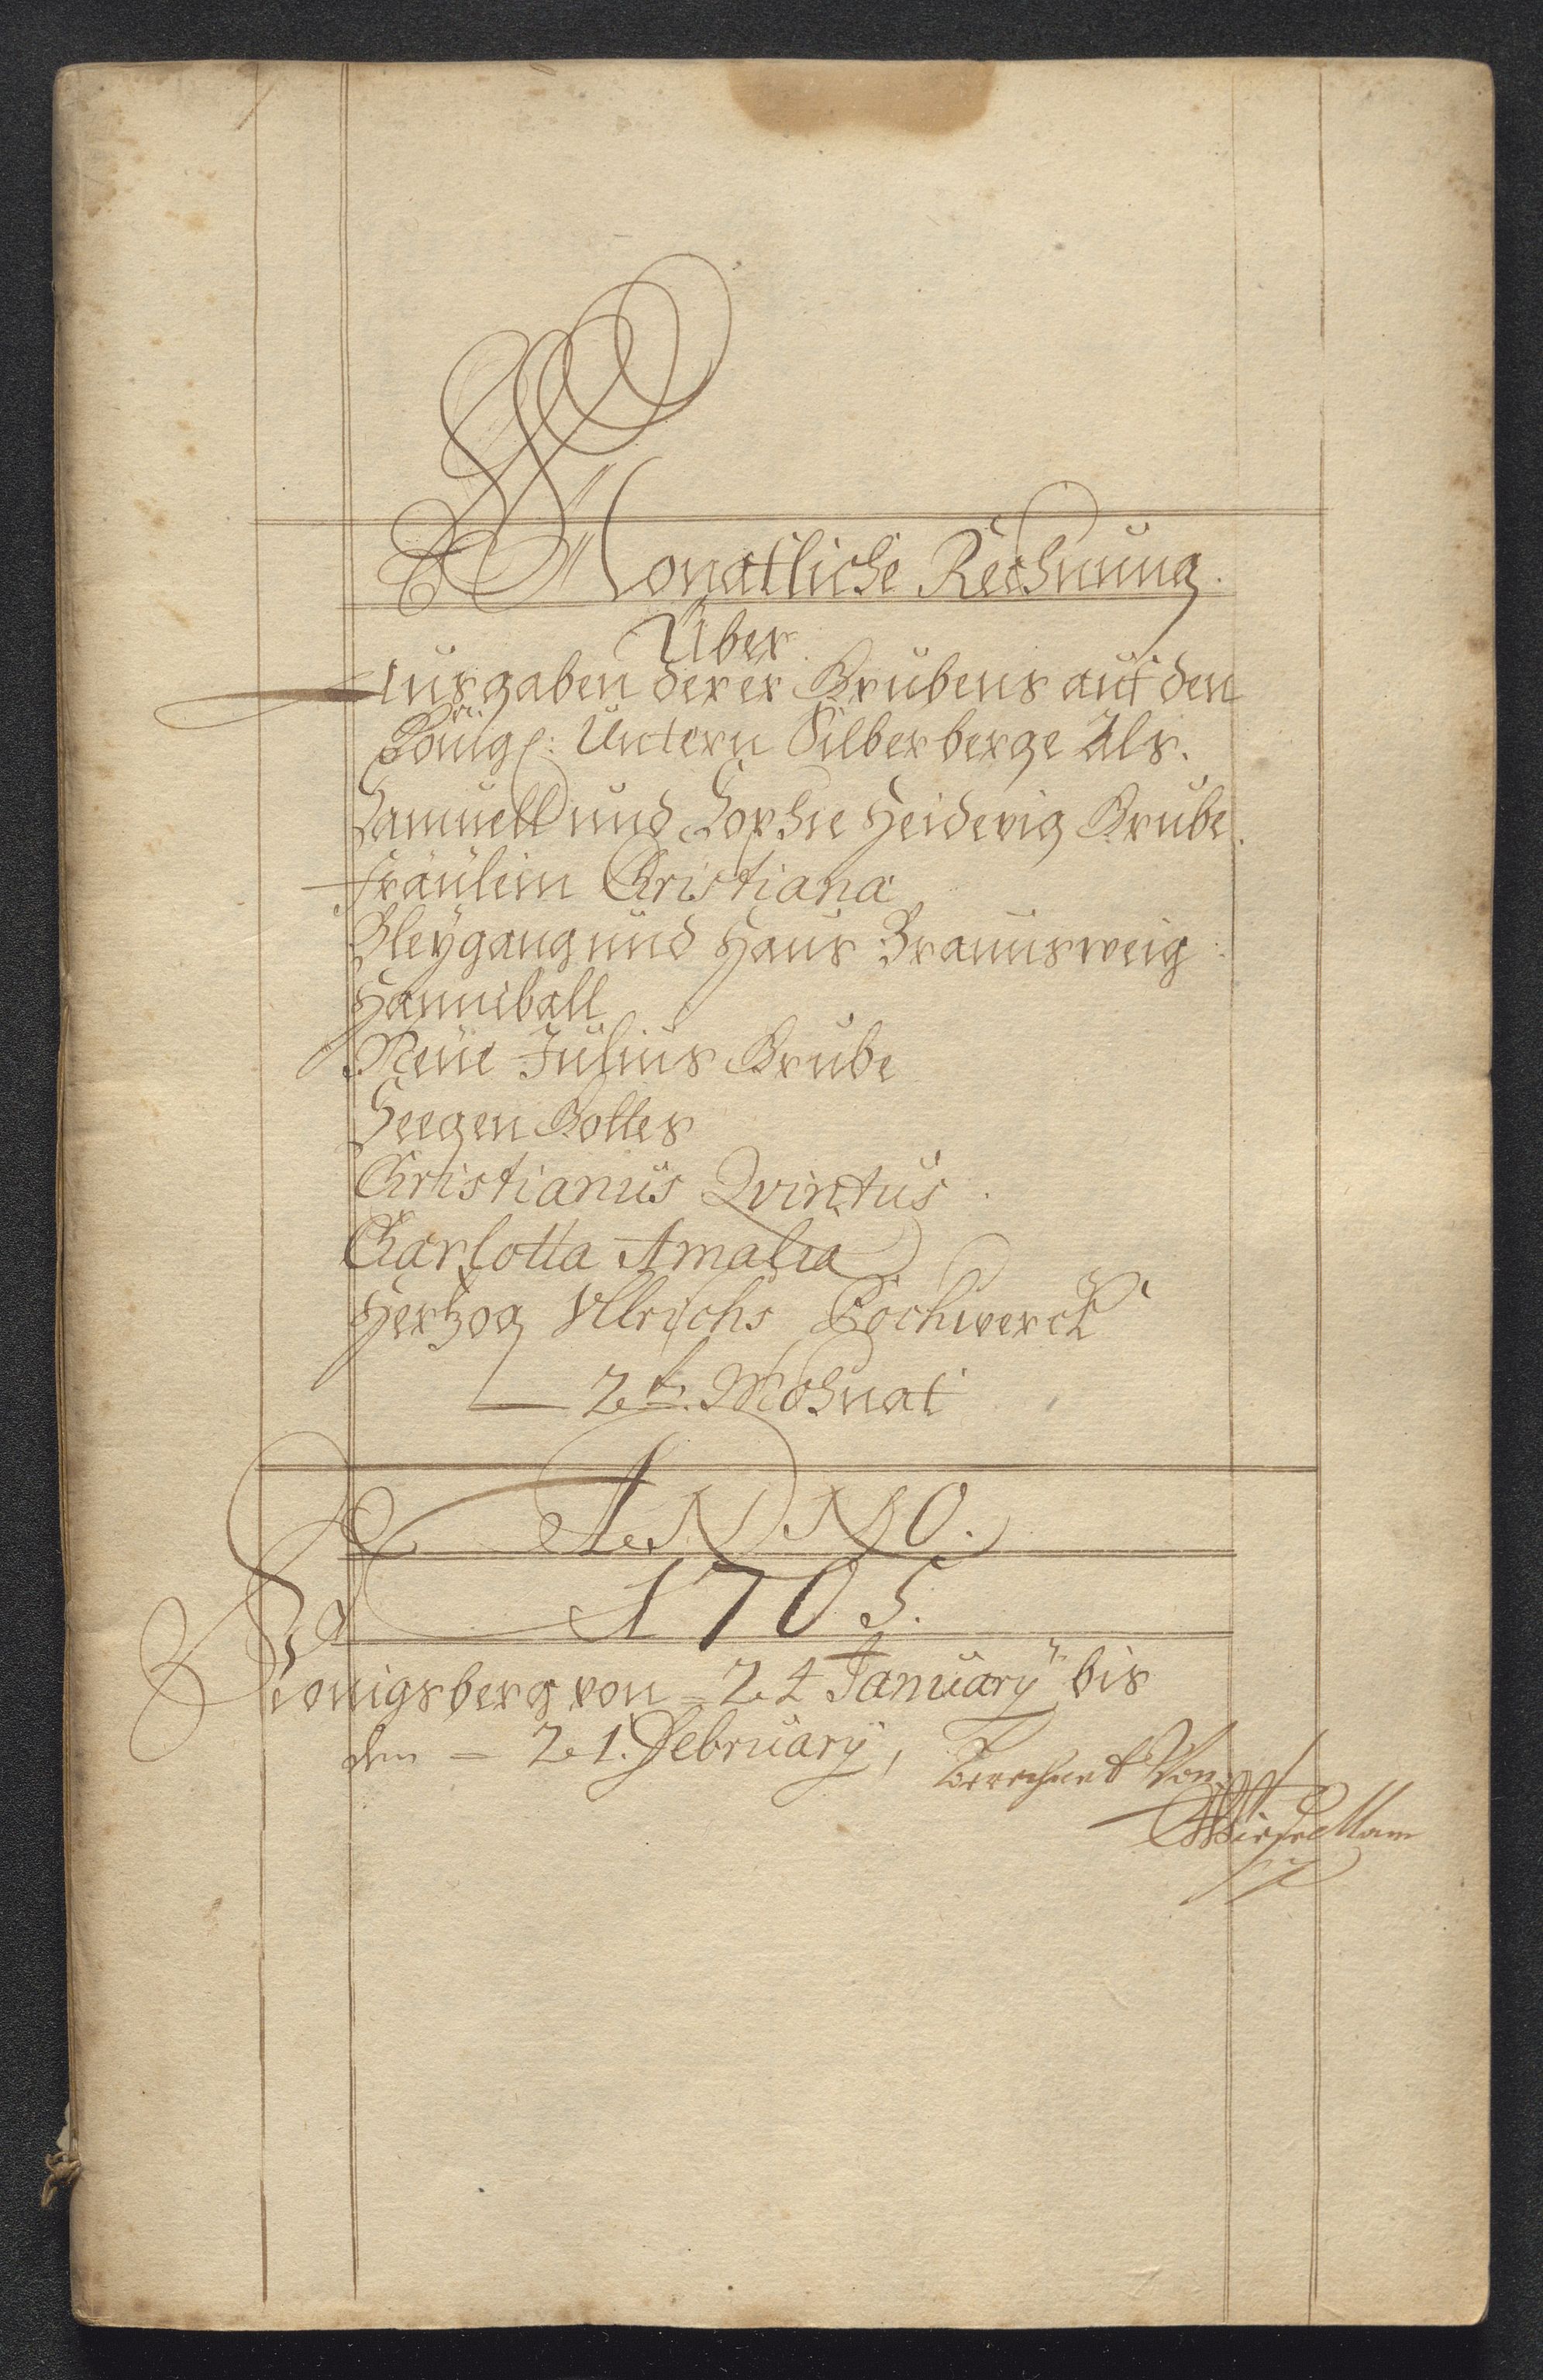 Monatliche Rechnung.
Über
Ausgaben derer Grubens auf den
Königl: Untern Silberberge Als.
Samuell und Sophie Heidevig Grube.
Fräulein Christiana
Bleygang und Haus Braunsweig
Hanniball
Neue Julius Grube
Seegen Gottes
Christianus Qvintus.
Charlotta Amalia
Hertzog Ullrichs Pochwerck
2t. Mohnat
ANNO.
1705.
Königsberg von = 24 January bis
den = 21. February,
Berechnet Von